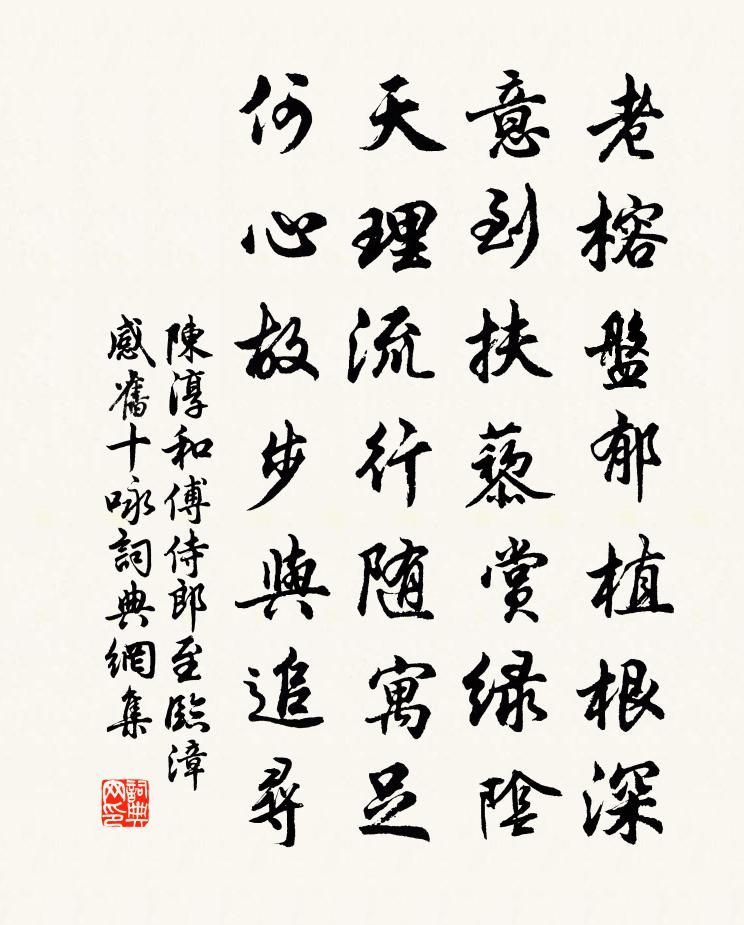 老榕盤郁植根深
意到扶藜賞緑陰
天理流行随寓足
何心故步與追尋
陳淳和傅侍郎至臨漳
感舊十咏詞典網集
詞典网印